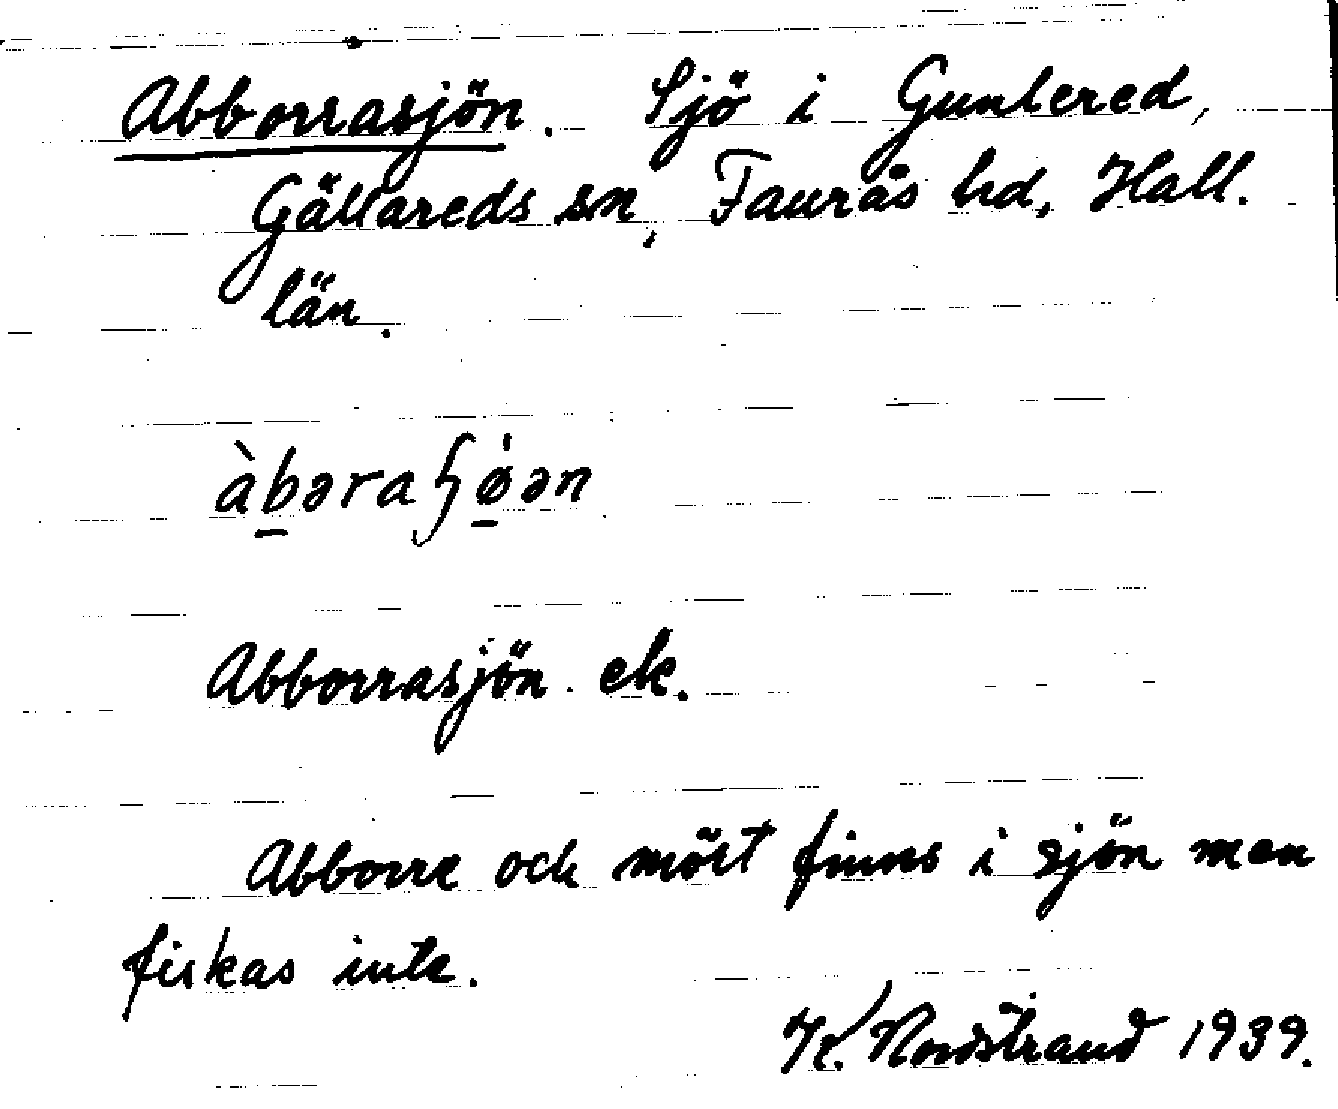 Abborrasjön. Sjö i Gunlered,
Gällareds sn, Faurås hd, Hall.
län.
àbəraɧø̍ən
Abborrasjön ek.
Abborre och mört finns i sjön men
fiskas inte.
K. Nordstrand 1939.